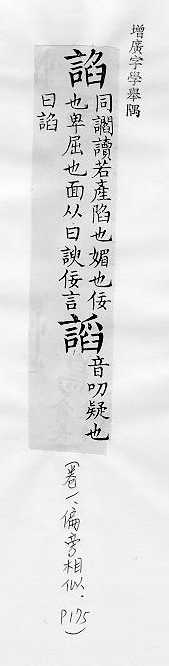 增廣字學舉隅
諂
同讇讀若產陷也媚也佞
也卑屈也面从曰諛佞言
曰諂
謟
音叨疑也
(卷一、偏旁相似. P175)